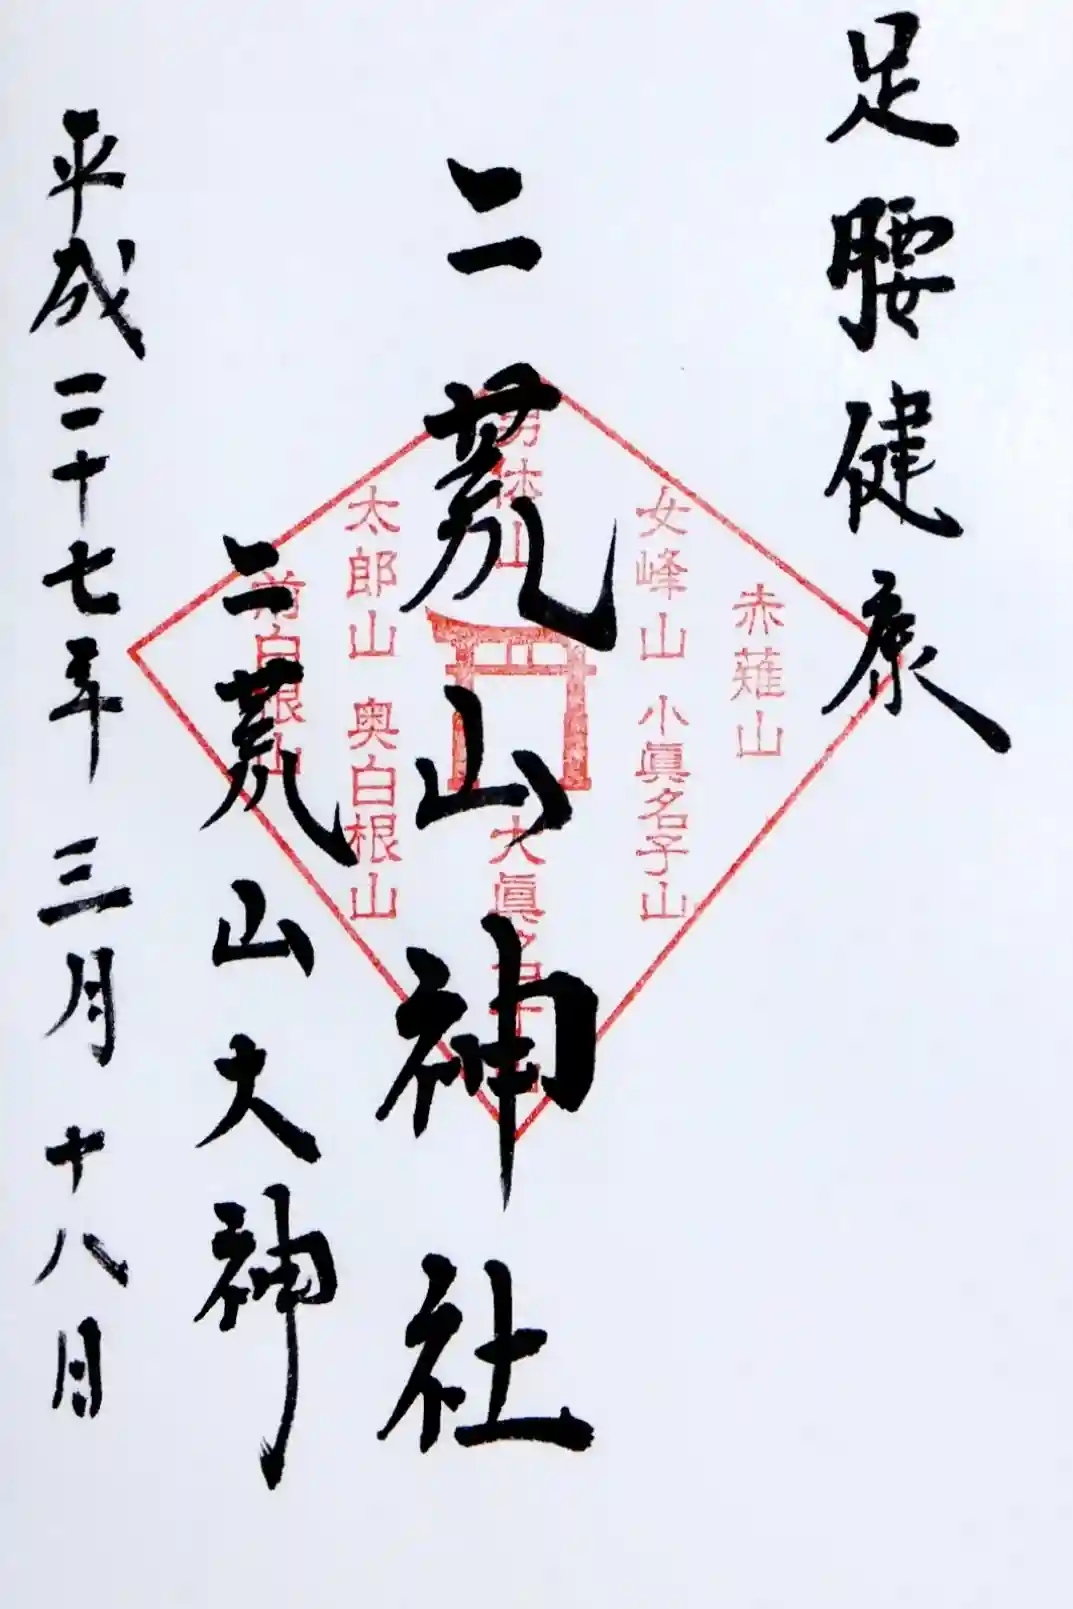 足腰健康
二荒山神社
二荒山大神
平成二十七年三月十八日
赤薙山
女峰山 小眞名子山
男体山 大眞名子山
太郎山 奥白根山
前白根山